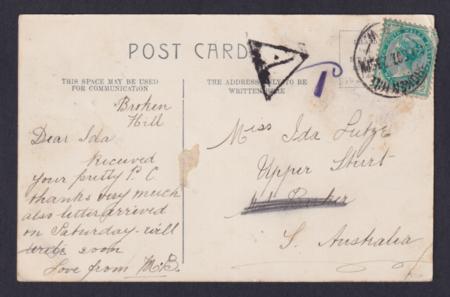 POST CARD
THIS SPACE MAY BE USED
FOR COMMUNICATION
THE ADDRESS ONLY TO BE
WRITTEN HERE
Broken
Hill
Dear Ida
Received
your pretty P.C
thanks very much
also letter arrived
on Saturday will
write soon
Love from M.B.
Miss Ida Lutze
Upper Sturt
Mt Barker
S. Australia